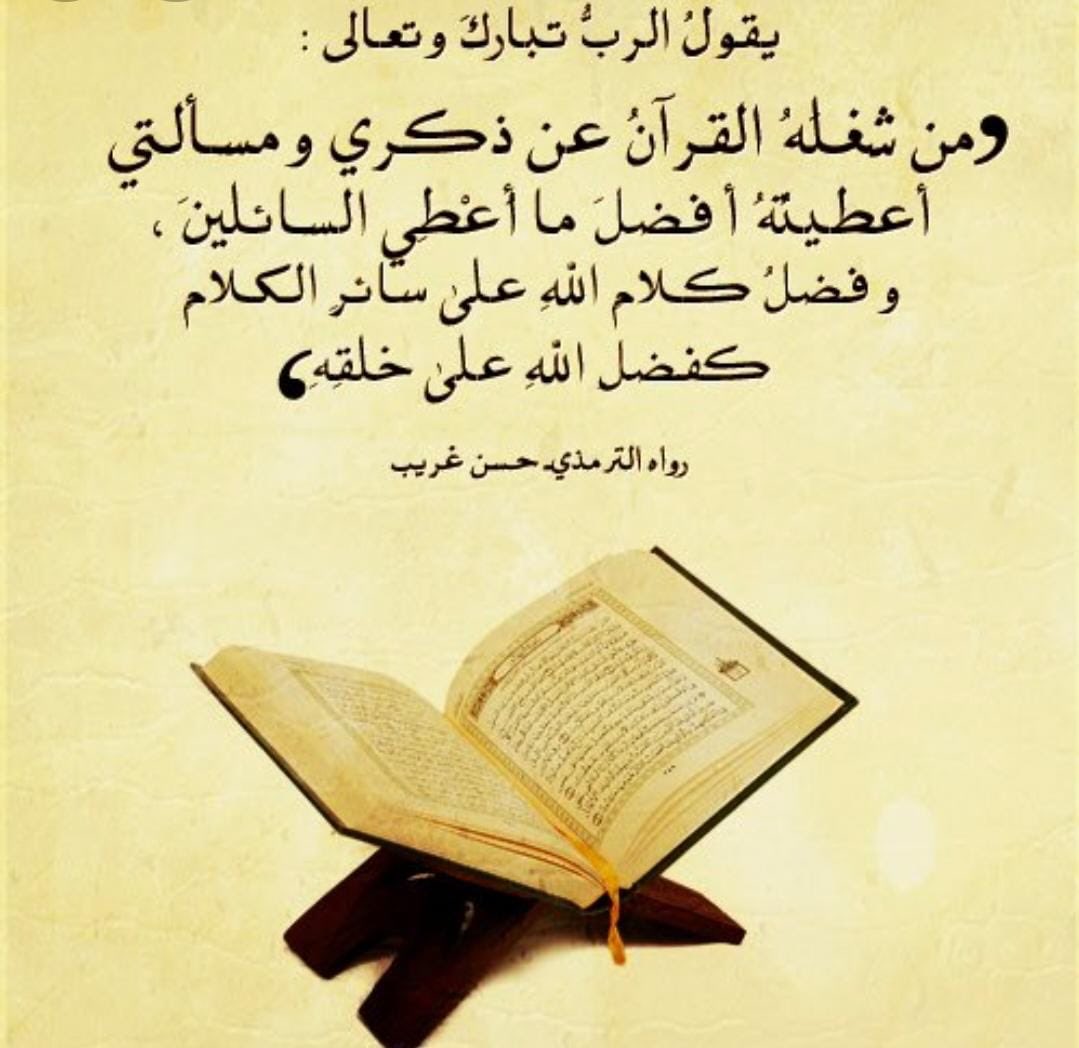 يقولُ الربُّ تباركَ وتعالى :
❜من شغلهُ القرآنُ عن ذكري و مسألتي
أعطيتهُ أفضلَ ما أعْطِي السائلينَ ،
و فضلُ كلام اللهِ علىٰ سائرِ الكلام
كفضل اللهِ علىٰ خلقِهِ❛
رواه الترمذي- حسن غريب